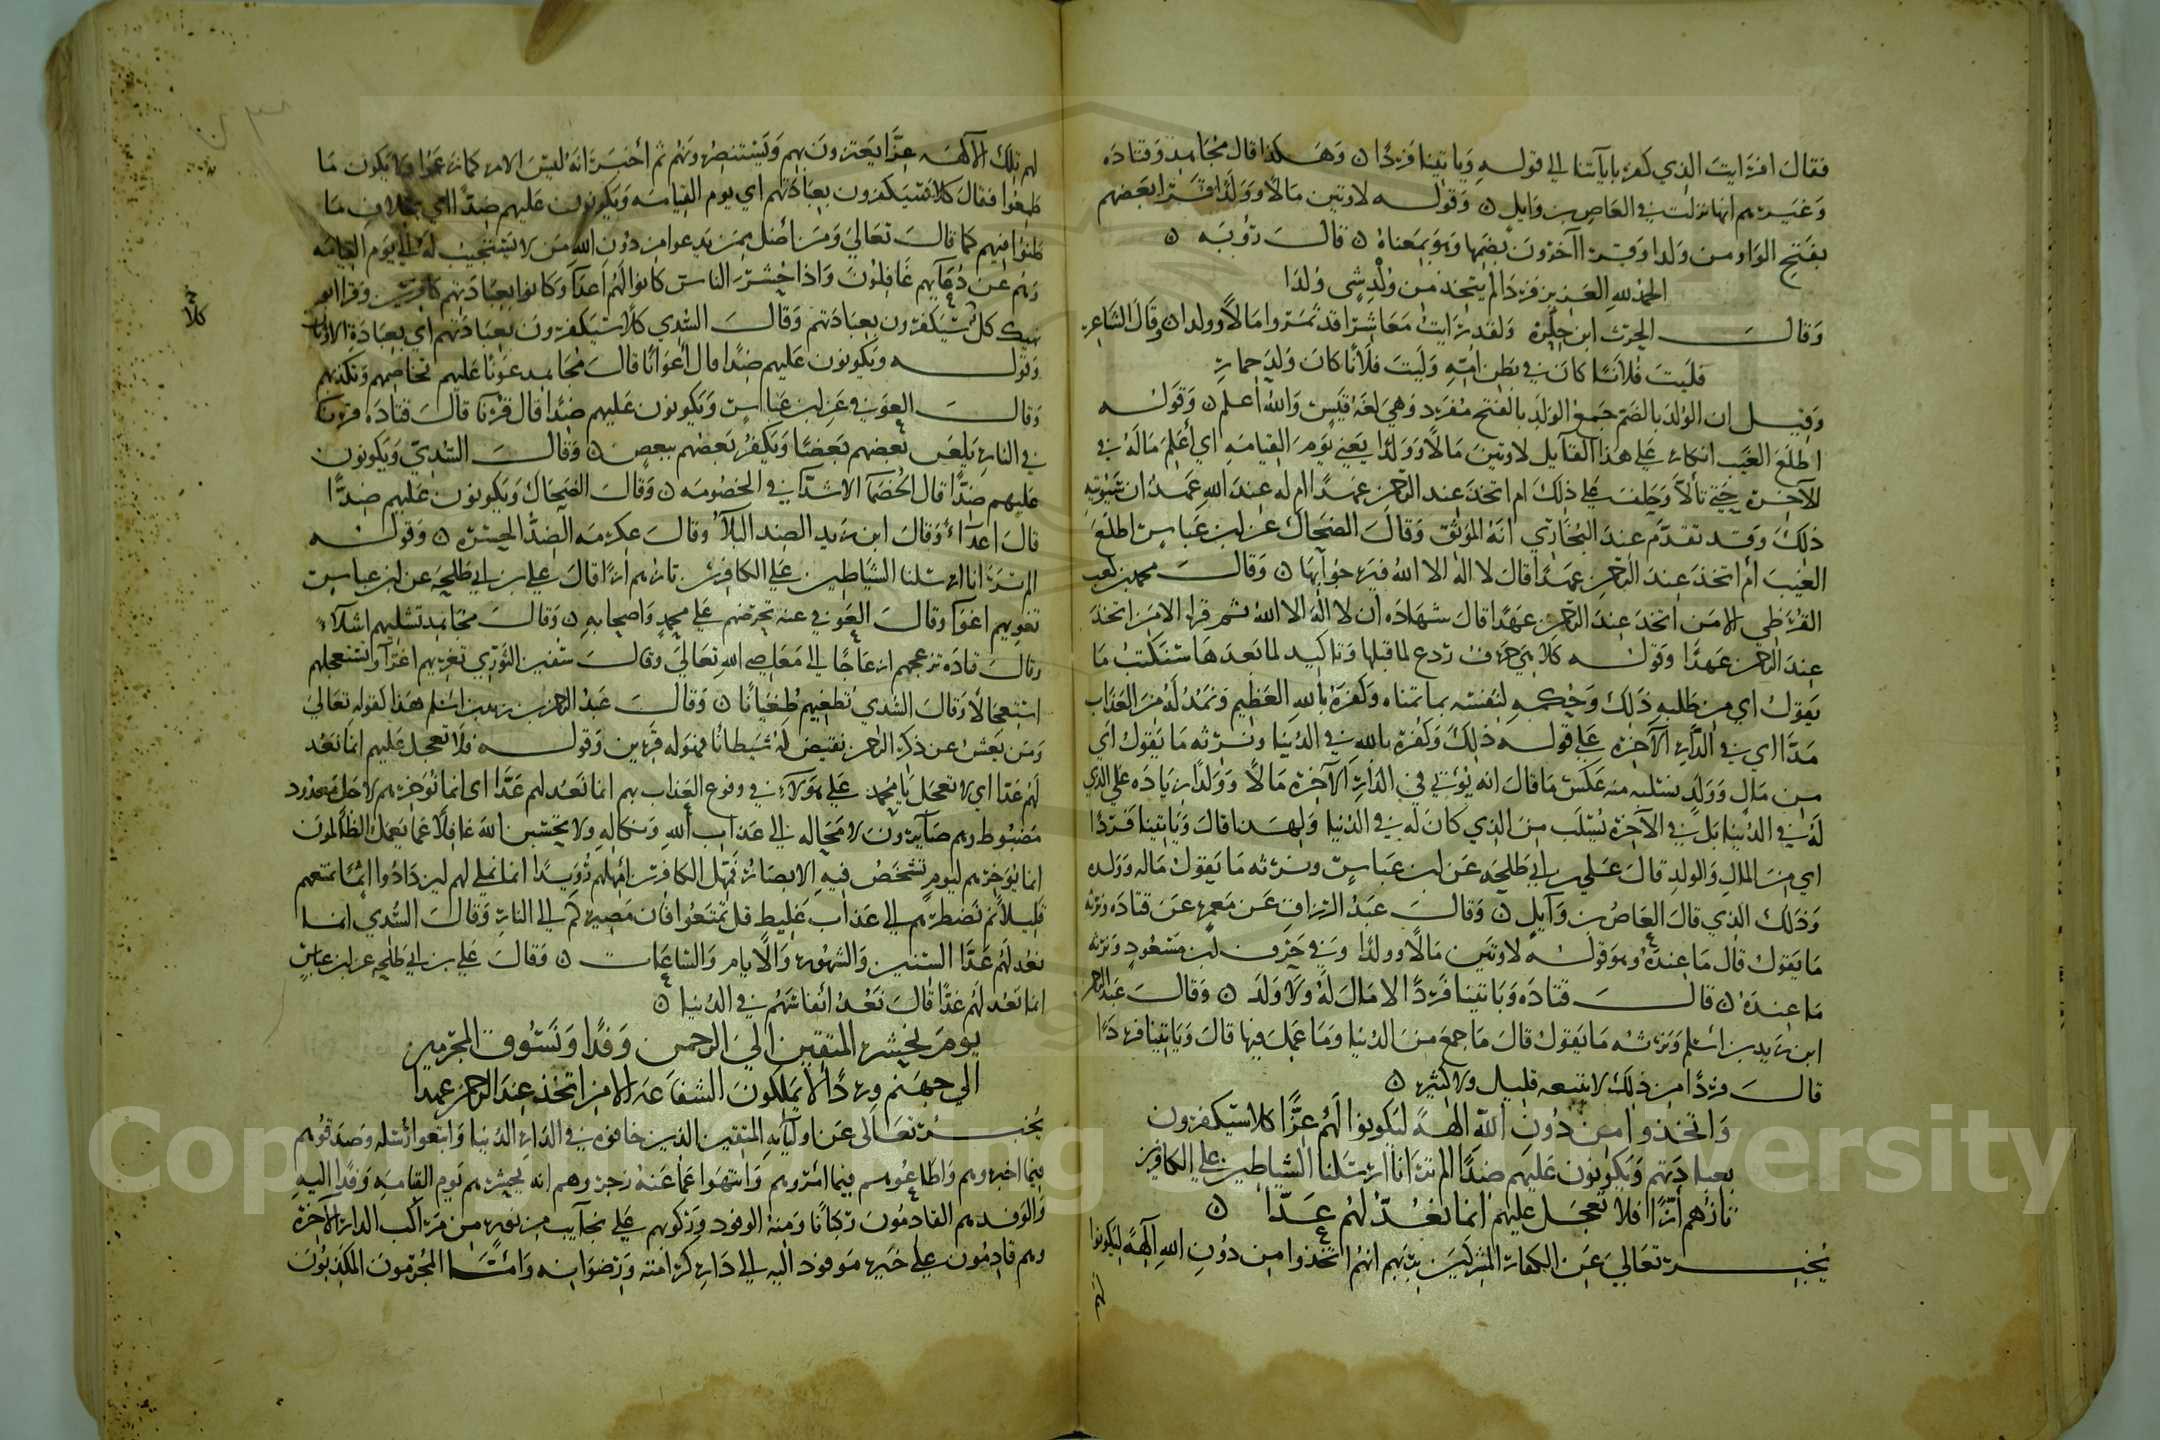 فقال افرايت الذي كفر باياتنا الي قوله وياتينا فردًا ۞ وهكذا قال مجاهد وقتاده
وغيرهم انها نزلت في العاص بن وايل ۞ وقوله لاوتين مالًا وولدًا قرا بعضهم
بفتح الواو من ولدا وقرا آخرون بضمها وهو بمعناه ۞ قال رؤبه ۞
الحمد لله العزيز فردا لم يتخذ من ولد شي ولدا
وقال الحرث ابن حلزة ولقد رايت معاشرا قد ثمروا مالًا وولدا ۞ وقال الشاعر
فليت فلانًا كان في بطن امّه وليت فلانًا كان ولد حمار
وقيل ان الولد بالضم جمع الولد بالفتح مفرد وهي لغة قيس والله أعلم ۞ وقوله
اطلع الغيب انكار علي هذا القايل لاوتين مالًا وولدًا يعني يوم القيامه اي أعلم ماله في
الآخرة حتي تألا وحلف علي ذلك ام اتخذ عند الرحمن عهدًا ام له عند الله عهد ان سيؤتيه
ذلك وقد تقدم عند البخاري انه الموثق وقال الضحاك عن ابن عباس اطلع
الغيب أم اتخذ عند الرحمن عهدًا قال لا اله الا الله فيرجو بها ۞ وقال محمد بن كعب
القرظي الا من اتخذ عند الرحمن عهدًا قال شهاده ان لا اله الا الله ثم قرا الا من اتخذ
عند الرحمن عهدًا وقوله كلا هي حرف ردع لما قبلها وتاكيد لما بعدها سنكتب ما
يقول اي من طلبه ذلك وحكمه لنفسه بما تمناه وكفره بالله العظيم ونمد له من العذاب
مدًّا اي في الدار الآخرة علي قوله ذلك وكفره بالله في الدنيا ونرثه ما يقول أي
من مال وولد نسلبه منه عكس ما قال انه يؤتي في الدار الآخرة مالًا وولدًا زياده علي الذي
له في الدنيا بل في الآخرة يسلب من الذي كان له في الدنيا ولهذا قال وياتينا فردًا
اي من المال والولد قال علي بن ابي طلحه عن ابن عباس ونرثه ما يقول ماله وولده
وذلك الذي قال العاص بن وايل ۞ وقال عبد الرزاق عن معمر عن قتاده ونرثه
ما يقول قال ما عنده وهو قوله لاوتين مالًا وولدًا وفي حرف ابن مسعود ونرثه
ما عنده ۞ قال قتاده وياتينا فردًا لا مال له ولا ولد ۞ وقال عبد الرحمن
ابن زيد بن اسلم ونرثه ما يقول قال ما جمع من الدنيا وما عمل فيها قال وياتينا فردًا
قال فردًا من ذلك لا يتبعه قليل ولا كثير ۞
واتخذوا من دون الله الهة ليكونوا لهم عزًّا كلا سيكفرون
بعبادتهم ويكونون عليهم ضدًّا الم تر انا ارسلنا الشياطين علي الكافرين
تازهم أزًّا فلا تعجل عليهم انما نعدّ لهم عدّا ۞
يخبر تعالي عن الكفار المشركين بربهم انهم اتخذوا من دون الله آلهة ليكونوا
لهم
لهم تلك الالهه عزًّا يعتزون بهم ويستنصرونهم ثم أخبر انه ليس الامر كما زعموا ولا يكون ما
طمعوا فقال كلا سيكفرون بعبادتهم اي يوم القيامه ويكونون عليهم ضدًّا اي بخلاف ما
ظنوا فيهم كما قال تعالي ومن أضل ممن يدعوا من دون الله من لا يستجيب له الي يوم القيامه
وهم عن دعايهم غافلون واذا حشر الناس كانوا لهم اعداء وكانوا بعبادتهم كافرين وقرا ابو
نهيك كل سيكفرون بعبادتهم وقال السّدي كلا سيكفرون بعبادتهم أي بعبادة الاوثان
كلا
وقوله ويكونون عليهم ضدًا قال أعوانًا قال مجاهد عونًا عليهم تخاصمهم وتكذبهم
وقال العوفي عن ابن عباس ويكونون عليهم ضدًا قال قرنا قال قتاده قرنا
في النار يلعن بعضهم بعضًا ويكفر بعضهم ببعض ۞ وقال السّدي ويكونون
عليهم ضدًّا قال الخصما الاشدّا في الخصومه ۞ وقال الضحاك ويكونون عليهم ضدًّا
قال اعداء وقال ابن زيد الضد البلآء وقال عكرمه الضدّ الحسرة ۞ وقوله
الم تر انا ارسلنا الشياطين علي الكافرين تازهم ازًا قال علي بن ابي طلحه عن ابن عباس
تغويهم اغوا وقال العوفي عنه تحرضهم علي محمد واصحابه ۞ وقال مجاهد تشليهم اشلآء
وقال قتاده تزعجهم ازعاجًا الي معاصي الله تعالي وقال سفين الثوري تغريهم اغرآ وتستعجلهم
استعجالًا وقال السّدي تطغيهم طغيانًا ۞ وقال عبد الرحمن بن زيد بن اسلم هذا كقوله تعالي
ومن يعش عن ذكر الرحمن نقيض له شيطانًا فهو له قرين وقوله فلا تعجل عليهم انما نعد
لهم عدّا اي لا تعجل يا محمد علي هؤلاء في وقوع العذاب بهم انما نعد لهم عدًّا اي انما نؤخرهم لاجل معدود
مضبوط وهم صآيرون لا محاله الي عذاب الله ونكاله ولا تحسبن الله غافلًا عما يعمل الظالمون
انما يؤخرهم ليوم تشخص فيه الابصار فمهل الكافرين أمهلهم رويدًا انما نملي لهم ليزدادوا اثمًا نمتعهم
قليلًا ثم نضطرهم الي عذاب غليظ قل تمتعوا فان مصيركم الي النار وقال السّدي انما
نعد لهم عدًّا السنين والشهور والايام والساعات ۞ وقال علي بن ابي طلحه عن ابن عباس
انما نعد لهم عدًّا قال نعد أنفاسهم في الدنيا ۞
يوم نحشر المتقين الي الرحمن وفدًا ونسوق المجرمين
الي جهنم وردًا لا يملكون الشفاعه الا من اتخذ عند الرحمن عهدا
يخبر تعالي عن اوليآيه المتقين الذين خافوه في الدار الدنيا واتبعوا رسله وصدقوهم
فيما اخبروهم واطاعوهم فيما امروهم وانتهوا عما عنه زجروهم انه يحشرهم يوم القيامه وفدًا اليه
والوفد هم القادمون ركبانًا ومنه الوفود وركوبهم علي نجآيب من نور من مراكب الدار الآخرة
وهم قادمون علي خير موفود اليه الي دار كرامته ورضوانه وامّا المجرمون المكذبون
Copyright © King Saud University